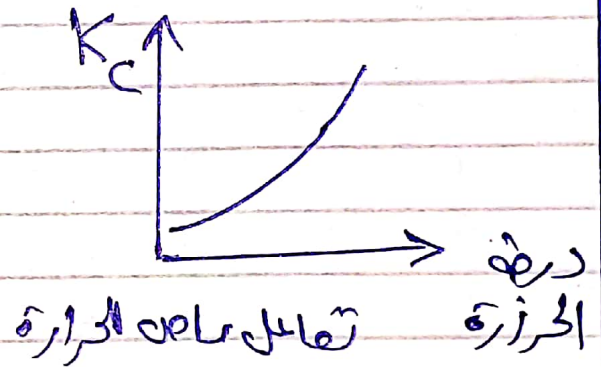 Kc
درجة
الحرارة
تفاعل ماص للحرارة